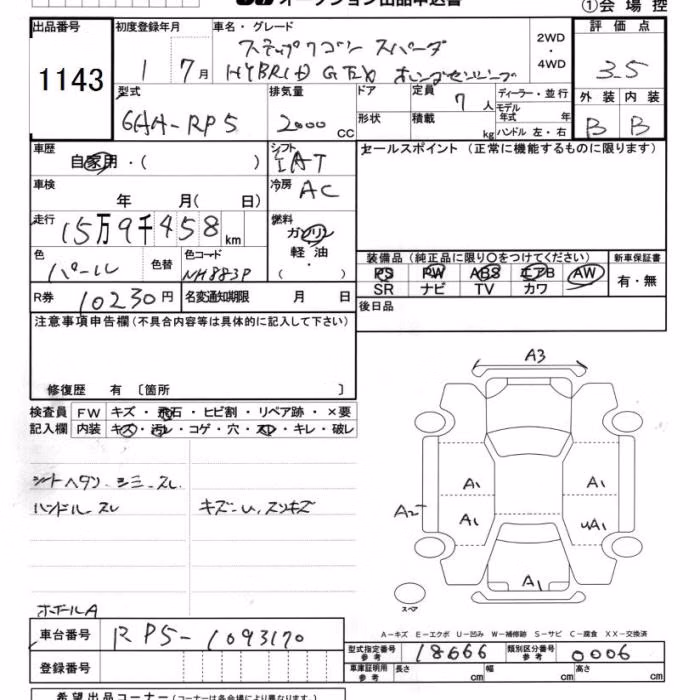 オークション出品申込書
①会場控
出品番号 1143
初度登録年月 1 7月
車名・グレード ステップワゴン スパーダ
HYBRID G・EX ホンダセンシング
2WD・4WD
評価点 3.5
型式 6AA-RP5
排気量 2000 cc
ドア
形状
定員 7人
積載 kg
ディーラー・並行
モデル年式 年
ハンドル 左・右
外装 内装
B B
車歴 自家用・( )
シフト IAT
セールスポイント (正常に機能するものに限ります)
車検 年 月( 日)
冷房 AC
走行 15万9千458km
燃料 ガソリン・軽油・( )
色 パール
色替
色コード NH883P
装備品(純正品に限り○をつけてください) 新車保証書
PS PW ABS エアB AW 有・無
SR ナビ TV カワ
R券 10230円
名変通知期限 月 日
後日品
注意事項申告欄(不具合内容等は具体的に記入して下さい)
修復歴 有 〔箇所 〕
検査員記入欄
FW キズ・飛石・ヒビ割・リペア跡・×要
内装 キズ・汚レ・コゲ・穴・スレ・キレ・破レ
シートヘタリ シミ スレ
ハンドル スレ
キズ・U、スリキズ
ホイールA
A3
A1 A1
A2 A1 uA1
A1
スペア
A-キズ E-エクボ U-凹み W-補修跡 S-サビ C-腐食 XX-交換済
車台番号 RP5-1093170
型式指定番号 参考 18666
類別区分番号 参考 0006
登録番号
車庫証明用 参考 長さ cm 幅 cm 高さ cm
希望出品コーナー(コーナーは各会場により異なります。)